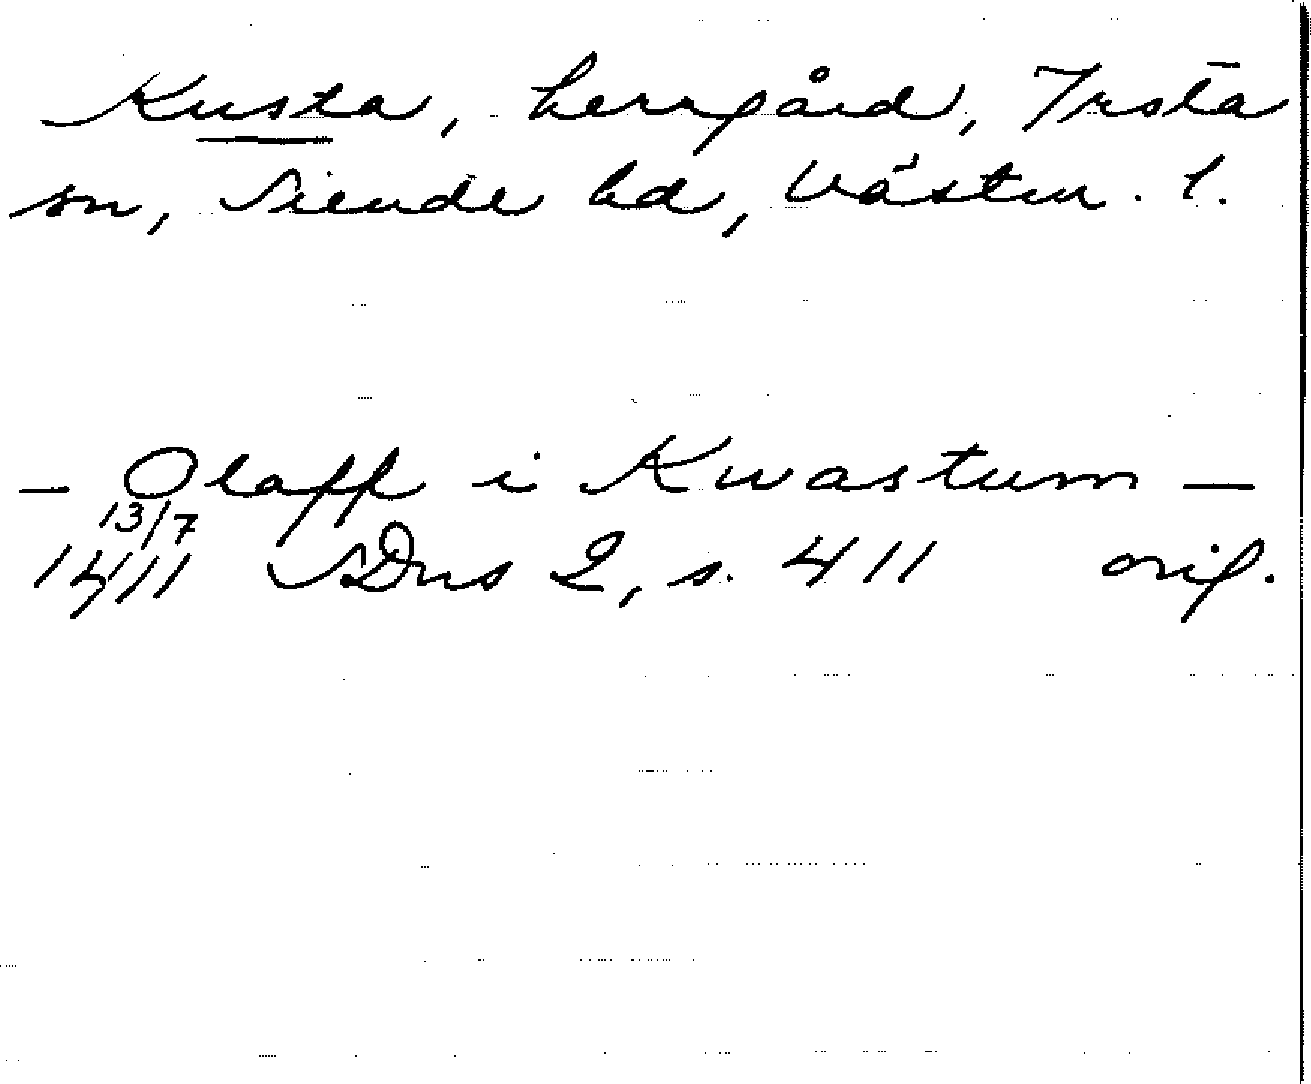 Kusta, herrgård, Irsta
sn, Siende hd, Västm. l.
– Olaff i Kwastum –
13/7
1411 SDns 2, s. 411 orig.